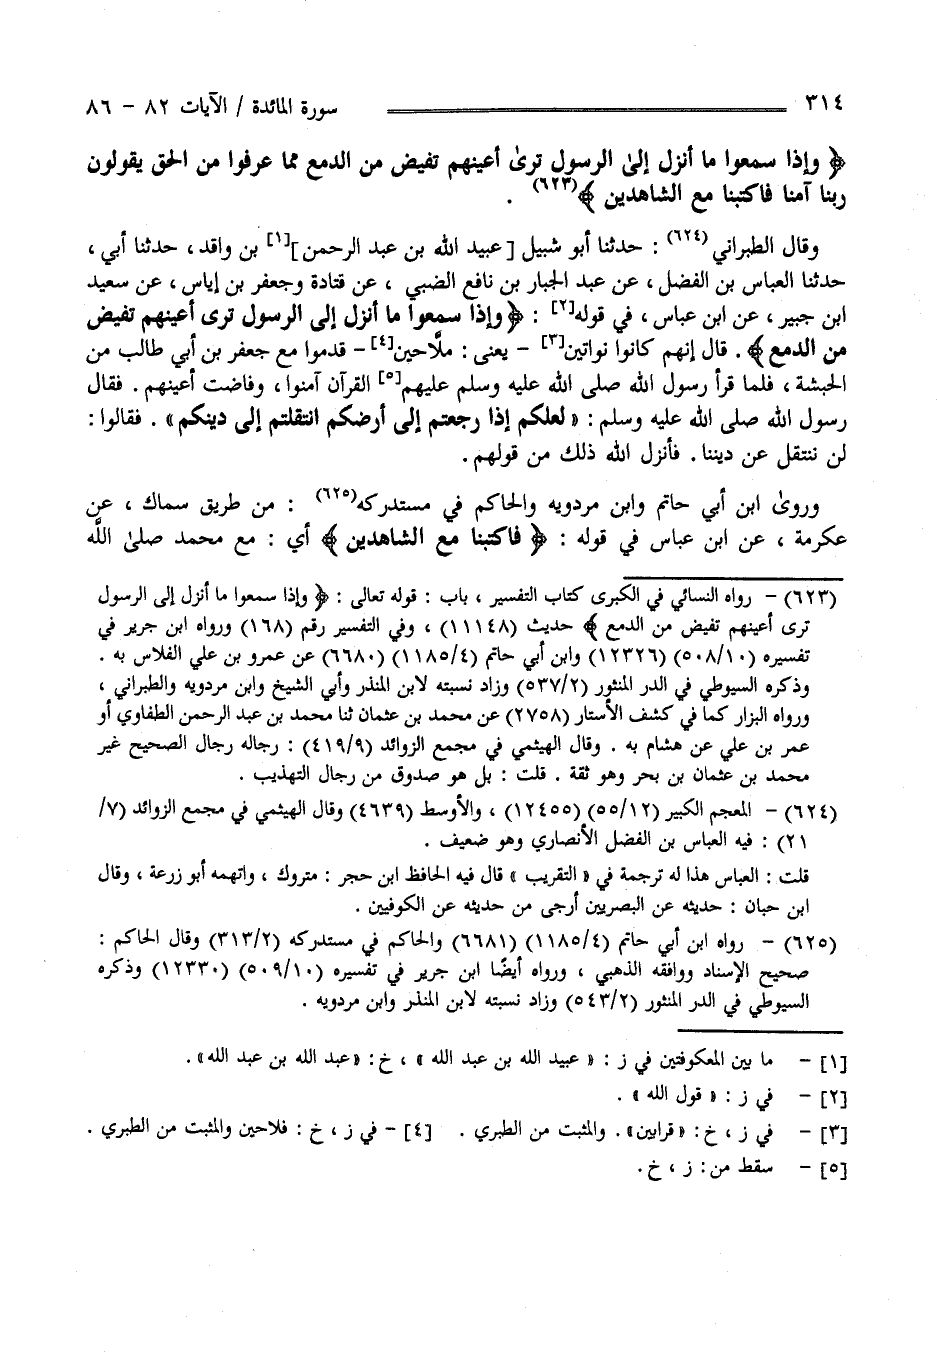 ٣١٤ سورة المائدة / الآيات ٨٢ - ٨٦
﴿ وإذا سمعوا ما أنزل إلىٰ الرسول ترىٰ أعينهم تفيض من الدمع مما عرفوا من الحق يقولون
ربنا آمنا فاكتبنا مع الشاهدين ﴾(٦٢٣) .
وقال الطبراني(٦٢٤) : حدثنا أبو شبيل [عبيد الله بن عبد الرحمن][١] بن واقد، حدثنا أبي،
حدثنا العباس بن الفضل، عن عبد الجبار بن نافع الضبي ، عن قتادة وجعفر بن إياس، عن سعيد
ابن جبير، عن ابن عباس، في قوله[٢] : ﴿وإذا سمعوا ما أنزل إلى الرسول ترى أعينهم تفيض
من الدمع﴾. قال إنهم كانوا نواتين[٣] - يعنى: ملَّاحين[٤]- قدموا مع جعفر بن أبي طالب من
الحبشة، فلما قرأ رسول الله صلى الله عليه وسلم عليهم[٥] القرآن آمنوا، وفاضت أعينهم. فقال
رسول الله صلى الله عليه وسلم: «لعلكم إذا رجعتم إلى أرضكم انتقلتم إلى دينكم». فقالوا:
لن ننتقل عن ديننا. فأنزل الله ذلك من قولهم.
وروىٰ ابن أبي حاتم وابن مردويه والحاكم في مستدركه(٦٢٥) : من طريق سماك، عن
عكرمة، عن ابن عباس في قوله : ﴿ فاكتبنا مع الشاهدين ﴾ أي : مع محمد صلىٰ اللَّه
(٦٢٣) - رواه النسائي في الكبرى كتاب التفسير، باب : قوله تعالى : ﴿ وإذا سمعوا ما أنزل إلى الرسول
ترى أعينهم تفيض من الدمع ﴾ حديث (١١١٤٨) ، وفي التفسير رقم (١٦٨) ورواه ابن جرير في
تفسيره (٥٠٨/١٠) (١٢٣٢٦) وابن أبي حاتم (١١٨٥/٤) (٦٦٨٠) عن عمرو بن علي الفلاس به .
وذكره السيوطي في الدر المنثور (٥٣٧/٢) وزاد نسبته لابن المنذر وأبي الشيخ وابن مردويه والطبراني ،
ورواه البزار كما في كشف الأستار (٢٧٥٨) عن محمد بن عثمان ثنا محمد بن عبد الرحمن الطفاوي أو
عمر بن علي عن هشام به . وقال الهيثمي في مجمع الزوائد (٤١٩/٩) : رجاله رجال الصحيح غير
محمد بن عثمان بن بحر وهو ثقة . قلت : بل هو صدوق من رجال التهذيب .
(٦٢٤) - المعجم الكبير (٥٥/١٢) (١٢٤٥٥) ، والأوسط (٤٦٣٩) وقال الهيثمي في مجمع الزوائد (٧/
٢١) : فيه العباس بن الفضل الأنصاري وهو ضعيف .
قلت : العباس هذا له ترجمة في « التقريب » قال فيه الحافظ ابن حجر : متروك ، واتهمه أبو زرعة ، وقال
ابن حبان : حديثه عن البصريين أرجى من حديثه عن الكوفيين .
(٦٢٥) - رواه ابن أبي حاتم (١١٨٥/٤) (٦٦٨١) والحاكم في مستدركه (٣١٣/٢) وقال الحاكم :
صحيح الإسناد ووافقه الذهبي ، ورواه أيضًا ابن جرير في تفسيره (٥٠٩/١٠) (١٢٣٣٠) وذكره
السيوطي في الدر المنثور (٥٤٣/٢) وزاد نسبته لابن المنذر وابن مردويه .
[١] - ما بين المعكوفتين في ز : « عبيد الله بن عبد الله » ، خ: «عبد الله بن عبد الله».
[٢] - في ز : « قول الله » .
[٣] - في ز ، خ: «قرابين». والمثبت من الطبري . [٤] - في ز ، خ : فلاحين والمثبت من الطبري .
[٥] - سقط من: ز ، خ.